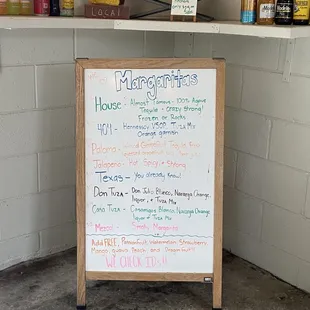 LOCAL
Margaritas
House - Almost Famous - 100% Agave
Tequila - Crazy Strong!
Frozen or Rocks
Hennessy VSOP, Tuza Mix
Orange garnish
Paloma -
Jalapeno - Hot, Spicy & Strong
Texas - You already Know!
Don Tuza - Don Julio Blanco, Naranja Orange,
liquor, & Tuza Mix
Casa Tuza - Casamigos Naranja Orange
liquor & Tuza Mix
Mezcal - Smoky Margarita
Add FREE, Passionfruit Watermelon Strawberry
Mango Peach and Dragonfruit
WE CHECK ID'S!!